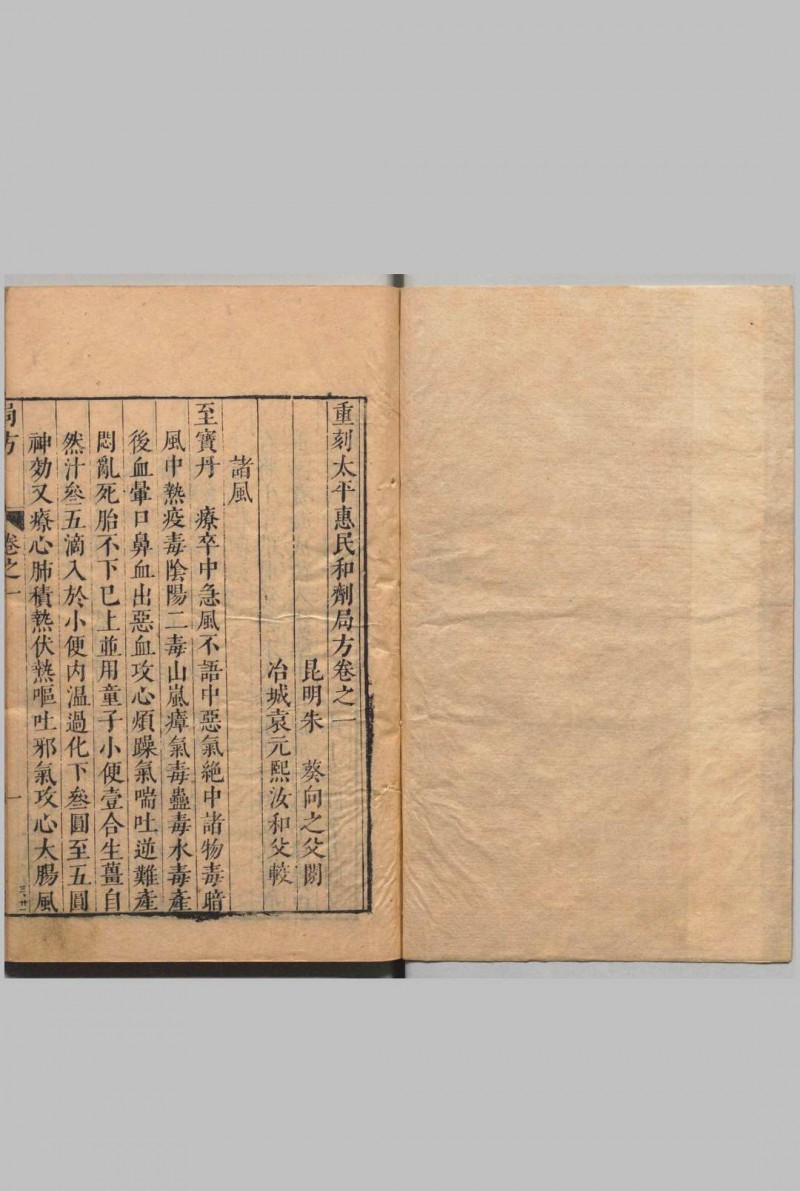 重刻太平惠民和劑局方卷之一
昆明朱　葵向之父閱
冶城袁元熙汝和父較
諸風
至寶丹　療卒中急風不語中惡氣絶中諸物毒暗
風中熱疫毒陰陽二毒山嵐瘴氣毒蠱毒水毒產
後血暈口鼻血出惡血攻心煩躁氣喘吐逆難產
悶亂死胎不下已上並用童子小便壹合生薑自
然汁叄五滴入於小便内温過化下叄圓至五圓
神効又療心肺積熱伏熱嘔吐邪氣攻心大腸風
局方　卷之一　一